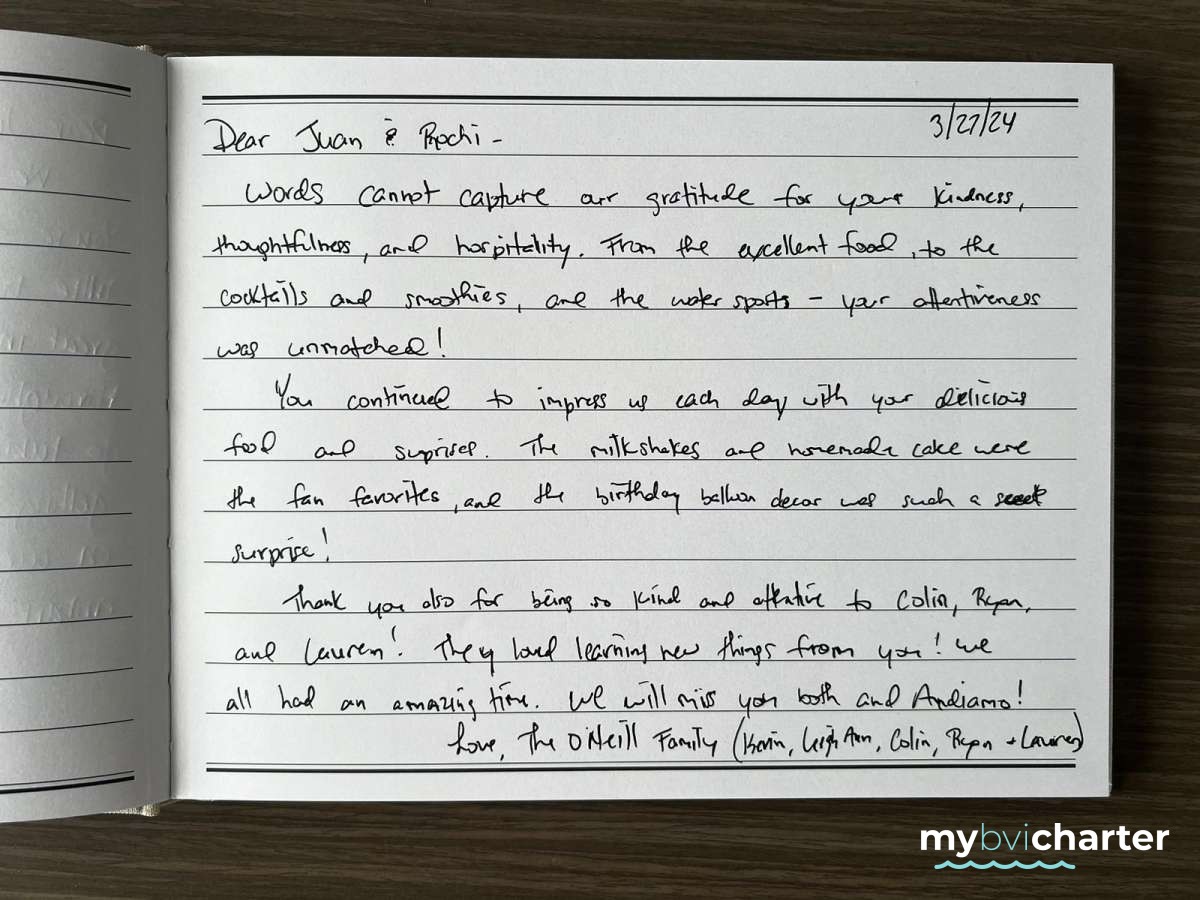 3/27/24
Dear Juan & Rochi -
Words cannot capture our gratitude for your kindness,
thoughtfulness, and hospitality. From the excellent food, to the
cocktails and smoothies, and the water sports - your attentiveness
was unmatched!
You continued to impress us each day with your delicious
food and surprises. The milkshakes and homemade cake were
the fan favorites, and the birthday balloon decor was such a
surprise!
Thank you also for being so kind and attentive to Colin, Ryan,
and Lauren! They loved learning new things from you! We
all had an amazing time. We will miss you both and Andiamo!
Love, The O'Neill Family (Kevin, Leigh Ann, Colin, Ryan + Lauren)
mybvicharter